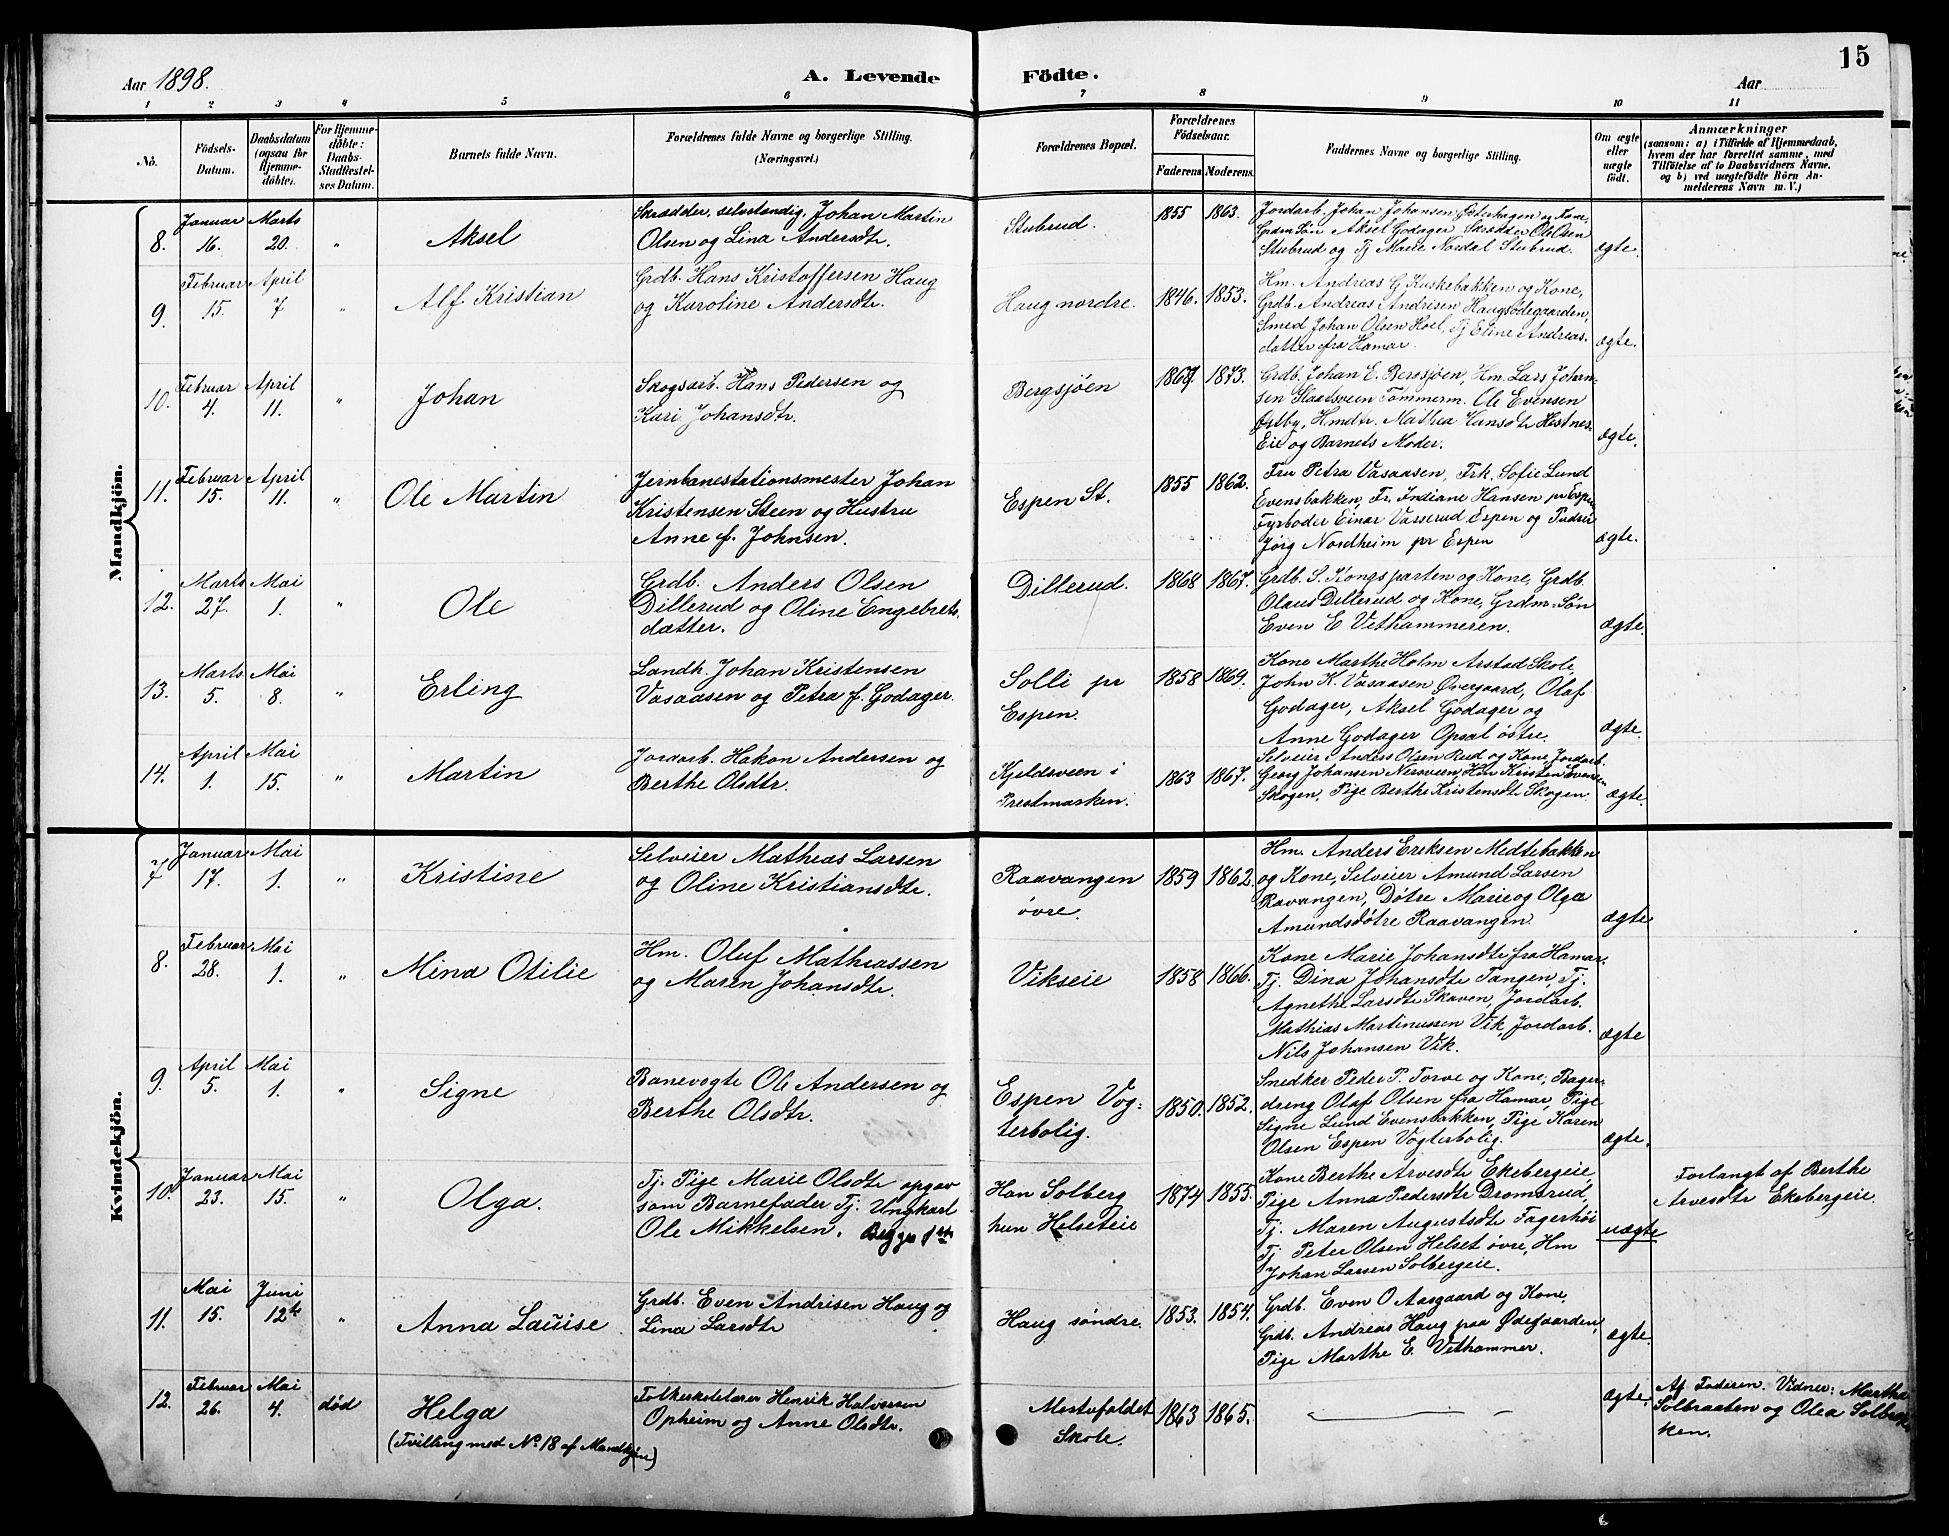 15
Aar 1898.
A. Levende Födte.
Aar
1 2 3 4 5 6 7 8 9 10 11
No.
Födsels-Datum.
Daabsdatum (ogsaa for Hjemme-döbte).
For Hjemme-döbte: Daabs-Stadfæstel-ses Datum.
Barnets fulde Navn.
Forældrenes fulde Navne og borgerlige Stilling. (Næringsvei.)
Forældrenes Bopæl.
Forældrenes Födselsaar.
Faderens Moderens
Faddernes Navne og borgerlige Stilling.
Om ægte eller uægte födt.
Anmærkninger
(saasom: a) i Tilfælde af Hjemmedaab,
hvem der har forrettet samme, med
Tilföielse af to Daabsvidners Navne.
og b) ved uægtefödte Börn An-
melderens Navn m. V.)
Mandkjön.
8. Januar 16. Marts 20. " Aksel
Skrædder, selvstændig, Johan Martin
Olsen og Lina Andersdtr.
Stubrud. 1855 1863.
Jordarb. Johan Johansen Østerhagen og Kone,
Grdm Søn Aksel Godager, Skrædder Ole Olsen
Stubrud og Tj. Marie Nordal Stubrud. ægte.
9. Februar 15. April 7 " Alf Kristian
Grdb. Hans Kristoffersen Haug
og Karoline Andersdtr.
Haug nordre. 1846. 1853.
Hm. Andreas G Kuskebakken og Kone,
Grdb. Andreas Andrisen Haugsødegaarden,
Smed Johan Olsen Hoel, Tj Eline Andreas-
datter fra Hamar. ægte.
10. Februar 4. April 11. " Johan
Skogsarb. Hans Pedersen og
Kari Johansdtr.
Bergsjøen 1867. 1873.
Grdb. Johan E. Bergsjøen, Hm. Lars Johan-
sen Slaatsveen Tømmerm. Ole Evensen
Østby, Hmdtr. Mathea Hansdtr Hestnes-
Eie og Barnets Moder. ægte.
11. Februar 15. April 11. " Ole Martin
Jernbanestationsmester Johan
Kristensen Steen og Hustru
Anne f. Johnsen.
Espen St. 1855 1862.
Fru Petra Vasaasen, Frk. Sofie Lund
Evensbakken, Fr. Indiane Hansen pr Espen
Fyrbøder Einar Vasserud Espen og
Jørg Nordheim pr Espen ægte.
12. Marts 27. Mai 1. " Ole
Grdb. Anders Olsen
Dillerud og Oline Engebrets-
datter.
Dillerud. 1868 1867.
Grdb. S. Kongsparten og Kone, Grdb.
Olaus Dillerud og Kone, Grdm. Søn
Even E Vethammeren. ægte.
13. Marts 5. Mai 8. " Erling
Landh. Johan Kristensen
Vasaasen og Petra f. Godager.
Solli pr
Espen. 1858 1869.
Kone Marthe Holm Arstad Skole
John K. Vasaasen Øvergaard, Olaf
Godager, Aksel Godager og
Anne Godager Opsal østre. ægte.
14. April 1. Mai 15. " Martin
Jordarb. Hakon Andersen og
Berthe Olsdtr.
Kjeldsveen i
Prestmarken. 1863 1867.
Selveier Anders Olsen Rud og Kone, Jordarb.
Georg Johansen Nersveen, Hm Kristen Evensen
Skogen, Pige Berthe Kristensdtr Skogen. ægte.
Kvindekjön.
7 Januar 17. Mai 1. " Kristine
Selveier Mathias Larsen
og Oline Kristiansdtr.
Raavangen
øvre. 1859 1862.
Hm. Anders Eriksen Medtebakken
og Kone, Selveier Amund Larsen
Ravangen, Døtre Marie og Olga
Amundsdøtre Raavangen. ægte
8. Februar 28. Mai 1. " Mina Otilie
Hm. Oluf Mathiassen
og Maren Johansdtr.
Vikseie 1858 1866.
Kone Marie Johansdtr fra Hamar.
Tj. Dina Johansdtr Tangen, Tj.
Agnethe Larsdtr Skaven, Jordarb.
Mathias Martinussen Vik, Jordarb.
Nils Johansen Vik. ægte
9. April 5. Mai 1. " Signe
Banevogte Ole Andersen og
Berthe Olsdtr.
Espen Vog-
terbolig. 1850. 1852.
Snedker Peder P. Torve og Kone, Bager-
dreng Olaf Olsen fra Hamar, Pige
Signe Lund Evensbakken, Pige Karen
Olsen Espen Vogterbolig. ægte.
10. Januar 23. Mai 15. " Olga.
Tj. Pige Marie Olsdtr opgav
som Barnefader Tj. Ungkarl
Ole Mikkelsen. Begges 1ste
Han Solberg
hun Helseteie 1874 1855.
Kone Berthe Arvesdtr Ekebergeie,
Pige Anna Pedersdtr Dromsrud,
Tj. Maren Augustsdtr Fagerhøi
Tj Peter Olsen Helset øvre, Hm
Johan Larsen Solbergeie. uægte
Forlangt af Berthe
Arvesdtr Ekebergeie.
11. Mai 15. Juni 12te " Anna Lauise
Grdb. Even Andrisen Haug og
Lina Larsdtr
Haug søndre. 1853. 1854.
Grdb. Even O Aasgaard og Kone,
Grdb. Andreas Haug paa Ødegaarden,
Pige Marthe E. Vethammer. ægte
12. Februar 26. Mai 4. død Helga
(Tvilling med No 18 af Mandkjøn)
Folkeskolelærer Henrik Halvorsen
Opheim og Anne Olsdtr.
Mostufaldet
Skole. 1863 1865. ægte.
Af Faderen. Vidner: Martha
Solbraaten og Olea
ken.